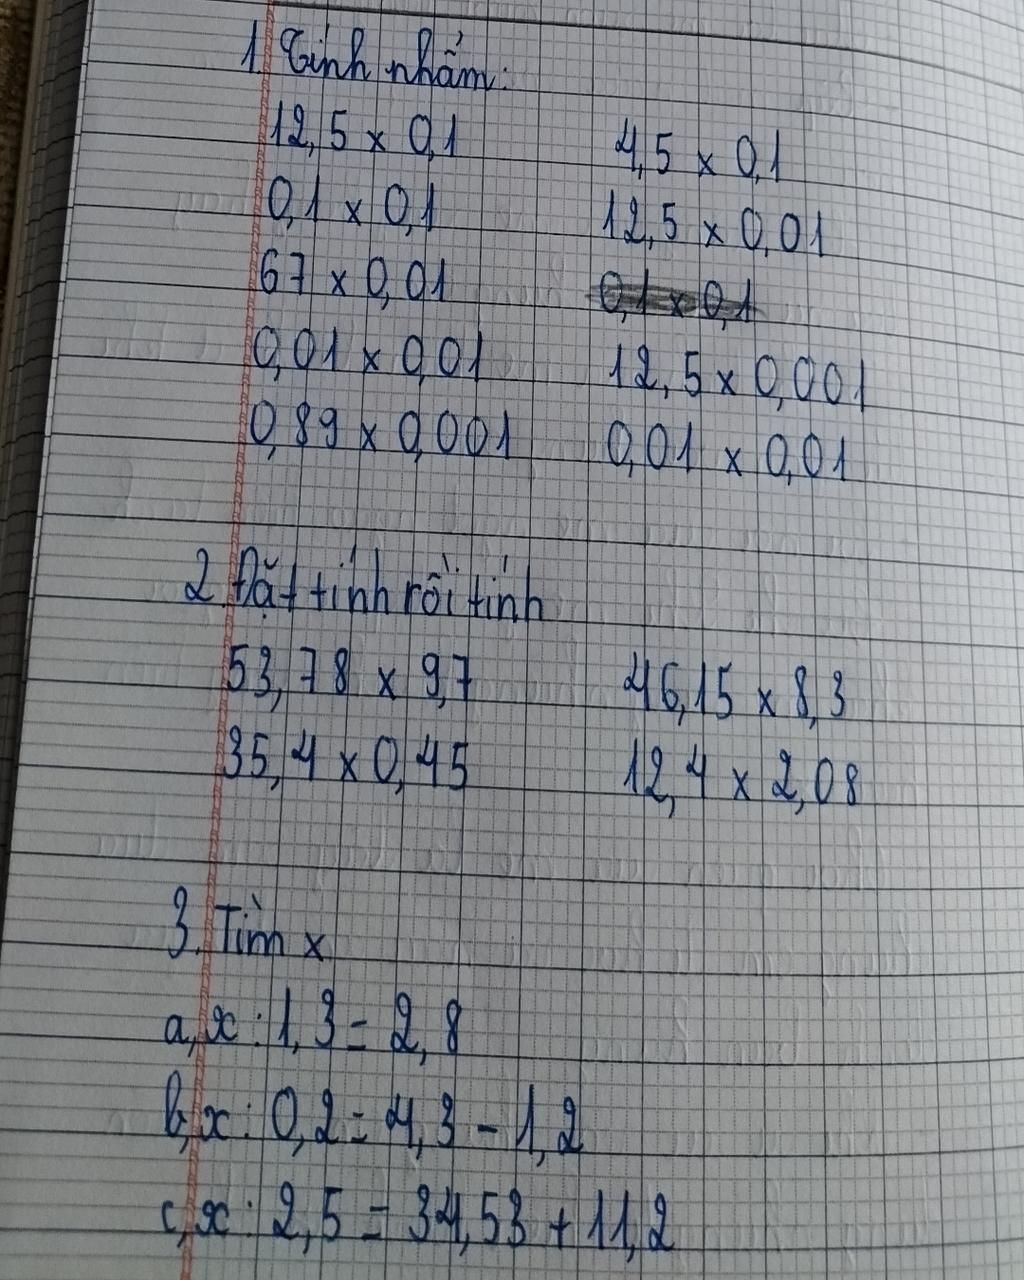 1. Tính nhẩm:
12,5 x 0,1    4,5 x 0,1
0,1 x 0,1    12,5 x 0,01
67 x 0,01    0,1 x 0,1
0,01 x 0,01    12,5 x 0,001
0,89 x 0,001    0,01 x 0,01
2. Đặt tính rồi tính
53,78 x 9,7    46,15 x 8,3
35,4 x 0,45    12,4 x 2,08
3. Tìm x
a, x : 1,3 = 2,8
b, x : 0,2 = 4,3 - 1,2
c, x : 2,5 = 34,53 + 11,2